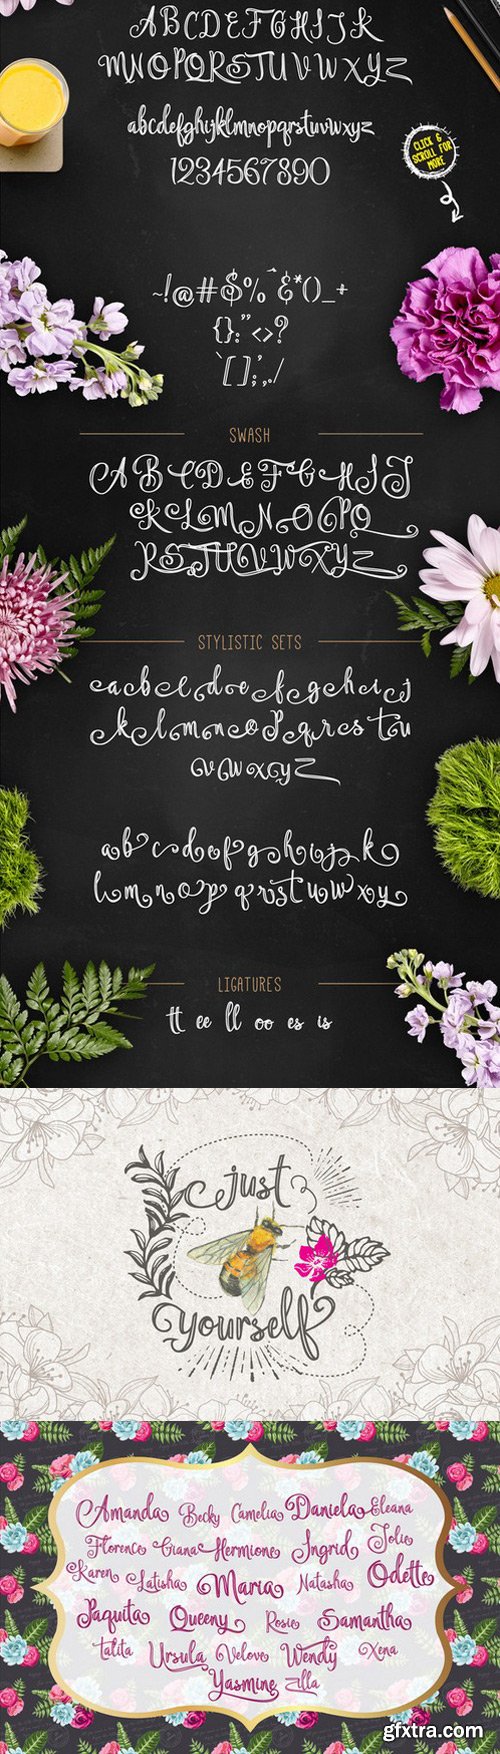 ABCDEFGHIJK
MNOPQRSTUVWXYZ
abcdefghijklmnopqrstuvwxyz
1234567890
CLICK &
SCROLL FOR
MORE
~!@#$%^&*()_+
{}:"<>?
`[];',./
SWASH
ABCDEFGHIJ
KLMNOPQ
RSTUVWXYZ
STYLISTIC SETS
abcdefghij
klmnopqrstu
vwxyz
abcdefghijk
lmnopqrstuvwxyz
LIGATURES
tt ee ll oo es is
just
yourself
Amanda Becky Camelia Daniela Eleana
Florence Giana Hermione Ingrid Jolie
Karen Latisha Maria Natasha Odette
Paquita Queeny Rosie Samantha
talita Ursula Velove Wendy Xena
Yasmine Zilla
gfxtra.com